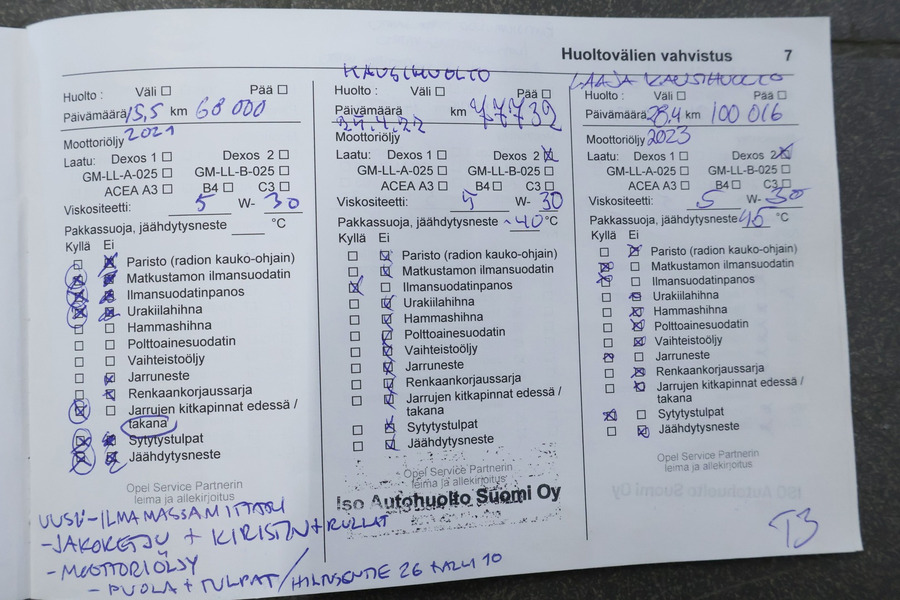 Huoltovälien vahvistus 7
Huolto : Väli ☐ Pää ☐
Päivämäärä 15,5 km 68 000
2021
Moottoriöljy
Laatu: Dexos 1 ☐ Dexos 2 ☐
GM-LL-A-025 ☐ GM-LL-B-025 ☐
ACEA A3 ☐ B4 ☐ C3 ☐
Viskositeetti: 5 W- 30
Pakkassuoja, jäähdytysneste °C
Kyllä Ei
Paristo (radion kauko-ohjain)
Matkustamon ilmansuodatin
Ilmansuodatinpanos
Urakiilahihna
Hammashihna
Polttoainesuodatin
Vaihteistoöljy
Jarruneste
Renkaankorjaussarja
Jarrujen kitkapinnat edessä /
takana
Sytytystulpat
Jäähdytysneste
Opel Service Partnerin
leima ja allekirjoitus
UUSI - ILMAMASSAMITTARI
- JAKOKETJU + KIRISTIN + RULLAT
- MOOTTORIÖLJY
- PUOLA + TULPAT /
KAUSIHUOLTO
Huolto : Väli ☐ Pää ☐
Päivämäärä km 77732
Moottoriöljy
Laatu: Dexos 1 ☐ Dexos 2 ☒
GM-LL-A-025 ☐ GM-LL-B-025 ☐
ACEA A3 ☐ B4 ☐ C3 ☐
Viskositeetti: 5 W- 30
Pakkassuoja, jäähdytysneste -40 °C
Kyllä Ei
Paristo (radion kauko-ohjain)
Matkustamon ilmansuodatin
Ilmansuodatinpanos
Urakiilahihna
Hammashihna
Polttoainesuodatin
Vaihteistoöljy
Jarruneste
Renkaankorjaussarja
Jarrujen kitkapinnat edessä /
takana
Sytytystulpat
Jäähdytysneste
Opel Service Partnerin
leima ja allekirjoitus
Iso Autohuolto Suomi Oy
LAAJA KAUSIHUOLTO
Huolto : Väli ☐ Pää ☐
Päivämäärä 28,4 km 100 016
2023
Moottoriöljy
Laatu: Dexos 1 ☐ Dexos 2 ☒
GM-LL-A-025 ☐ GM-LL-B-025 ☐
ACEA A3 ☐ B4 ☐ C3 ☐
Viskositeetti: 5 W- 30
Pakkassuoja, jäähdytysneste 45 °C
Kyllä Ei
Paristo (radion kauko-ohjain)
Matkustamon ilmansuodatin
Ilmansuodatinpanos
Urakiilahihna
Hammashihna
Polttoainesuodatin
Vaihteistoöljy
Jarruneste
Renkaankorjaussarja
Jarrujen kitkapinnat edessä /
takana
Sytytystulpat
Jäähdytysneste
Opel Service Partnerin
leima ja allekirjoitus